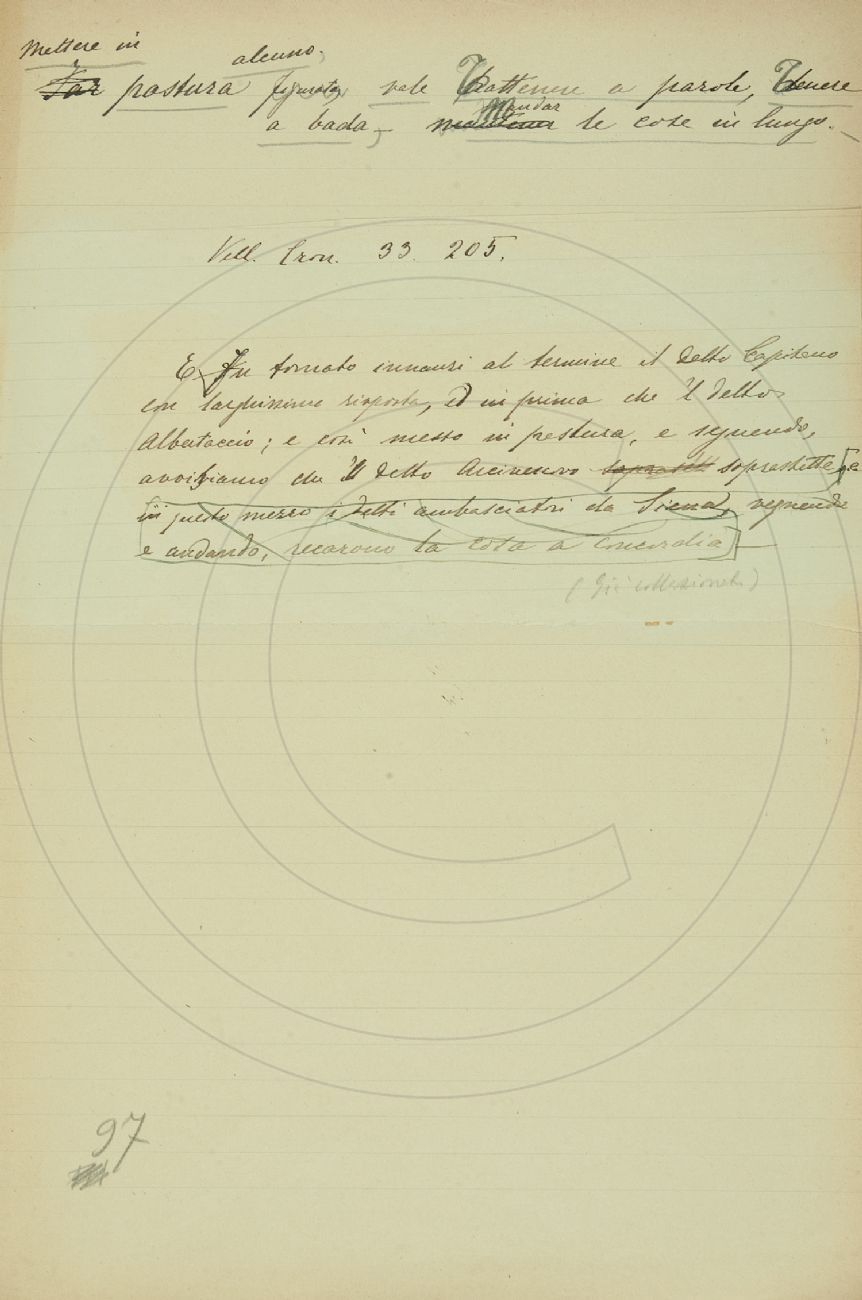 Mettere in
alcuno.
Far pastura figurata, vale Trattenere a parole, Tenere
Mandar
a bada, le cose in lungo.
Vell. Cron. 33. 205.
E Fu tornato innanzi al termine il detto Capitano
con larghissima risposta, ed in prima che 'l detto
Albertaccio; e così messo in pastura, e seguendo,
avvisiamo che 'l detto Arcivescovo soprastette, e
in questo mezzo i detti ambasciatori da Siena, vegnendo
e andando, recarono la cosa a concordia
(Già collezionato)
97